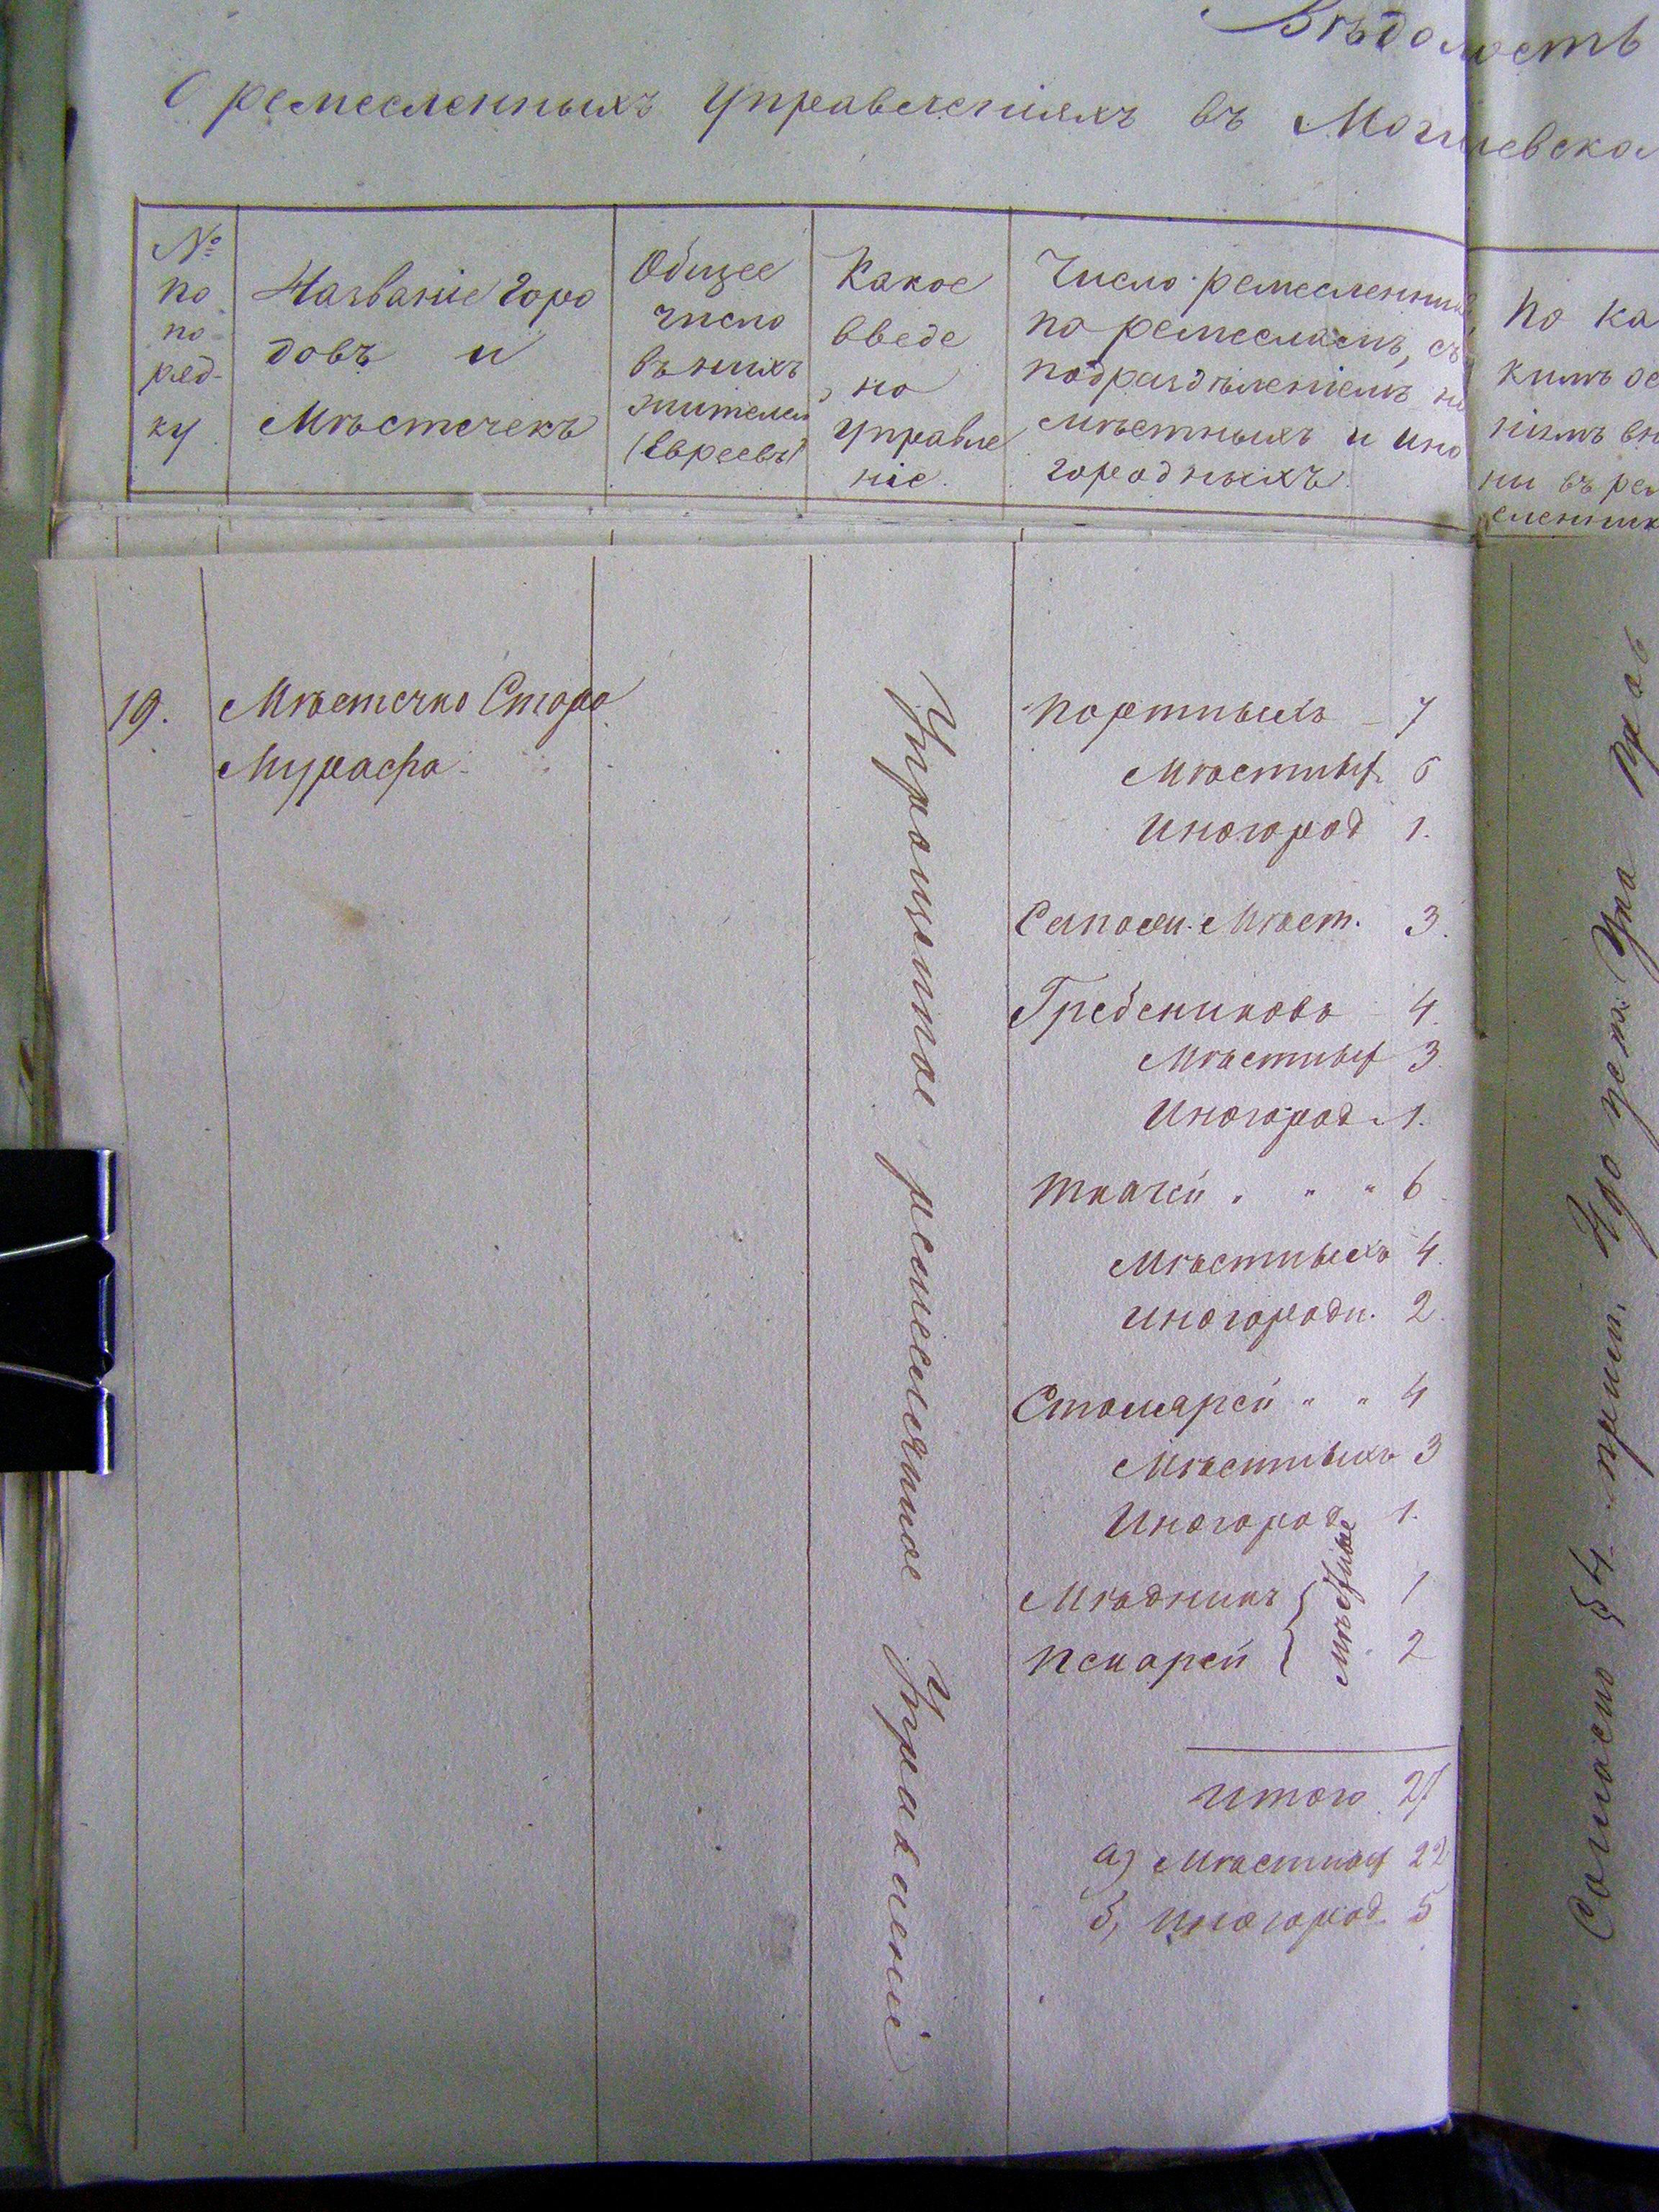 Вѣдомость
О ремесленныхъ Управленіяхъ въ Могилевско
№
по
по-
ряд-
ку
Названіе горо
довъ и
Мѣстечекъ
Общее
число
въ нихъ
жителей
(Евреевъ)
Какое
введе
но
Управле
ніе.
Число ремесленник
по ремесламъ, съ
подраздѣленіемъ на
мѣстныхъ и ино
городныхъ.
По ка
кимъ ос
ніямъ вн
ны въ рем
сленник
19.
Мѣстечко Старо
Мурафа
Упрощенное ремесленное Управленіе
Портныхъ - 7
Мѣстных 6
Иногород 1.
Сапожн. Мѣст. 3.
Гребениковъ - 4.
Мѣстных 3.
Иногород. 1.
Ткачей " " " 6.
Мѣстныхъ 4.
Иногородн. 2.
Столярей " " 4
Мѣстныхъ 3
Иногород. 1.
Мѣдникъ 1
Пекарей 2
Мѣстные
Итого 27
а) Мѣстных 22
б, Иногород. 5
Согласно § 4 прим.